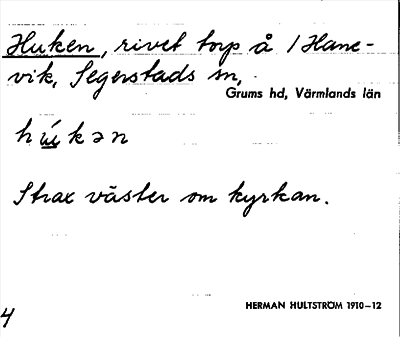 Huken, rivet torp å 1 Hane-
vik, Segerstads sn,
Grums hd, Värmlands län
húkən
Strax väster om kyrkan.
HERMAN HULTSTRÖM 1910–12
4